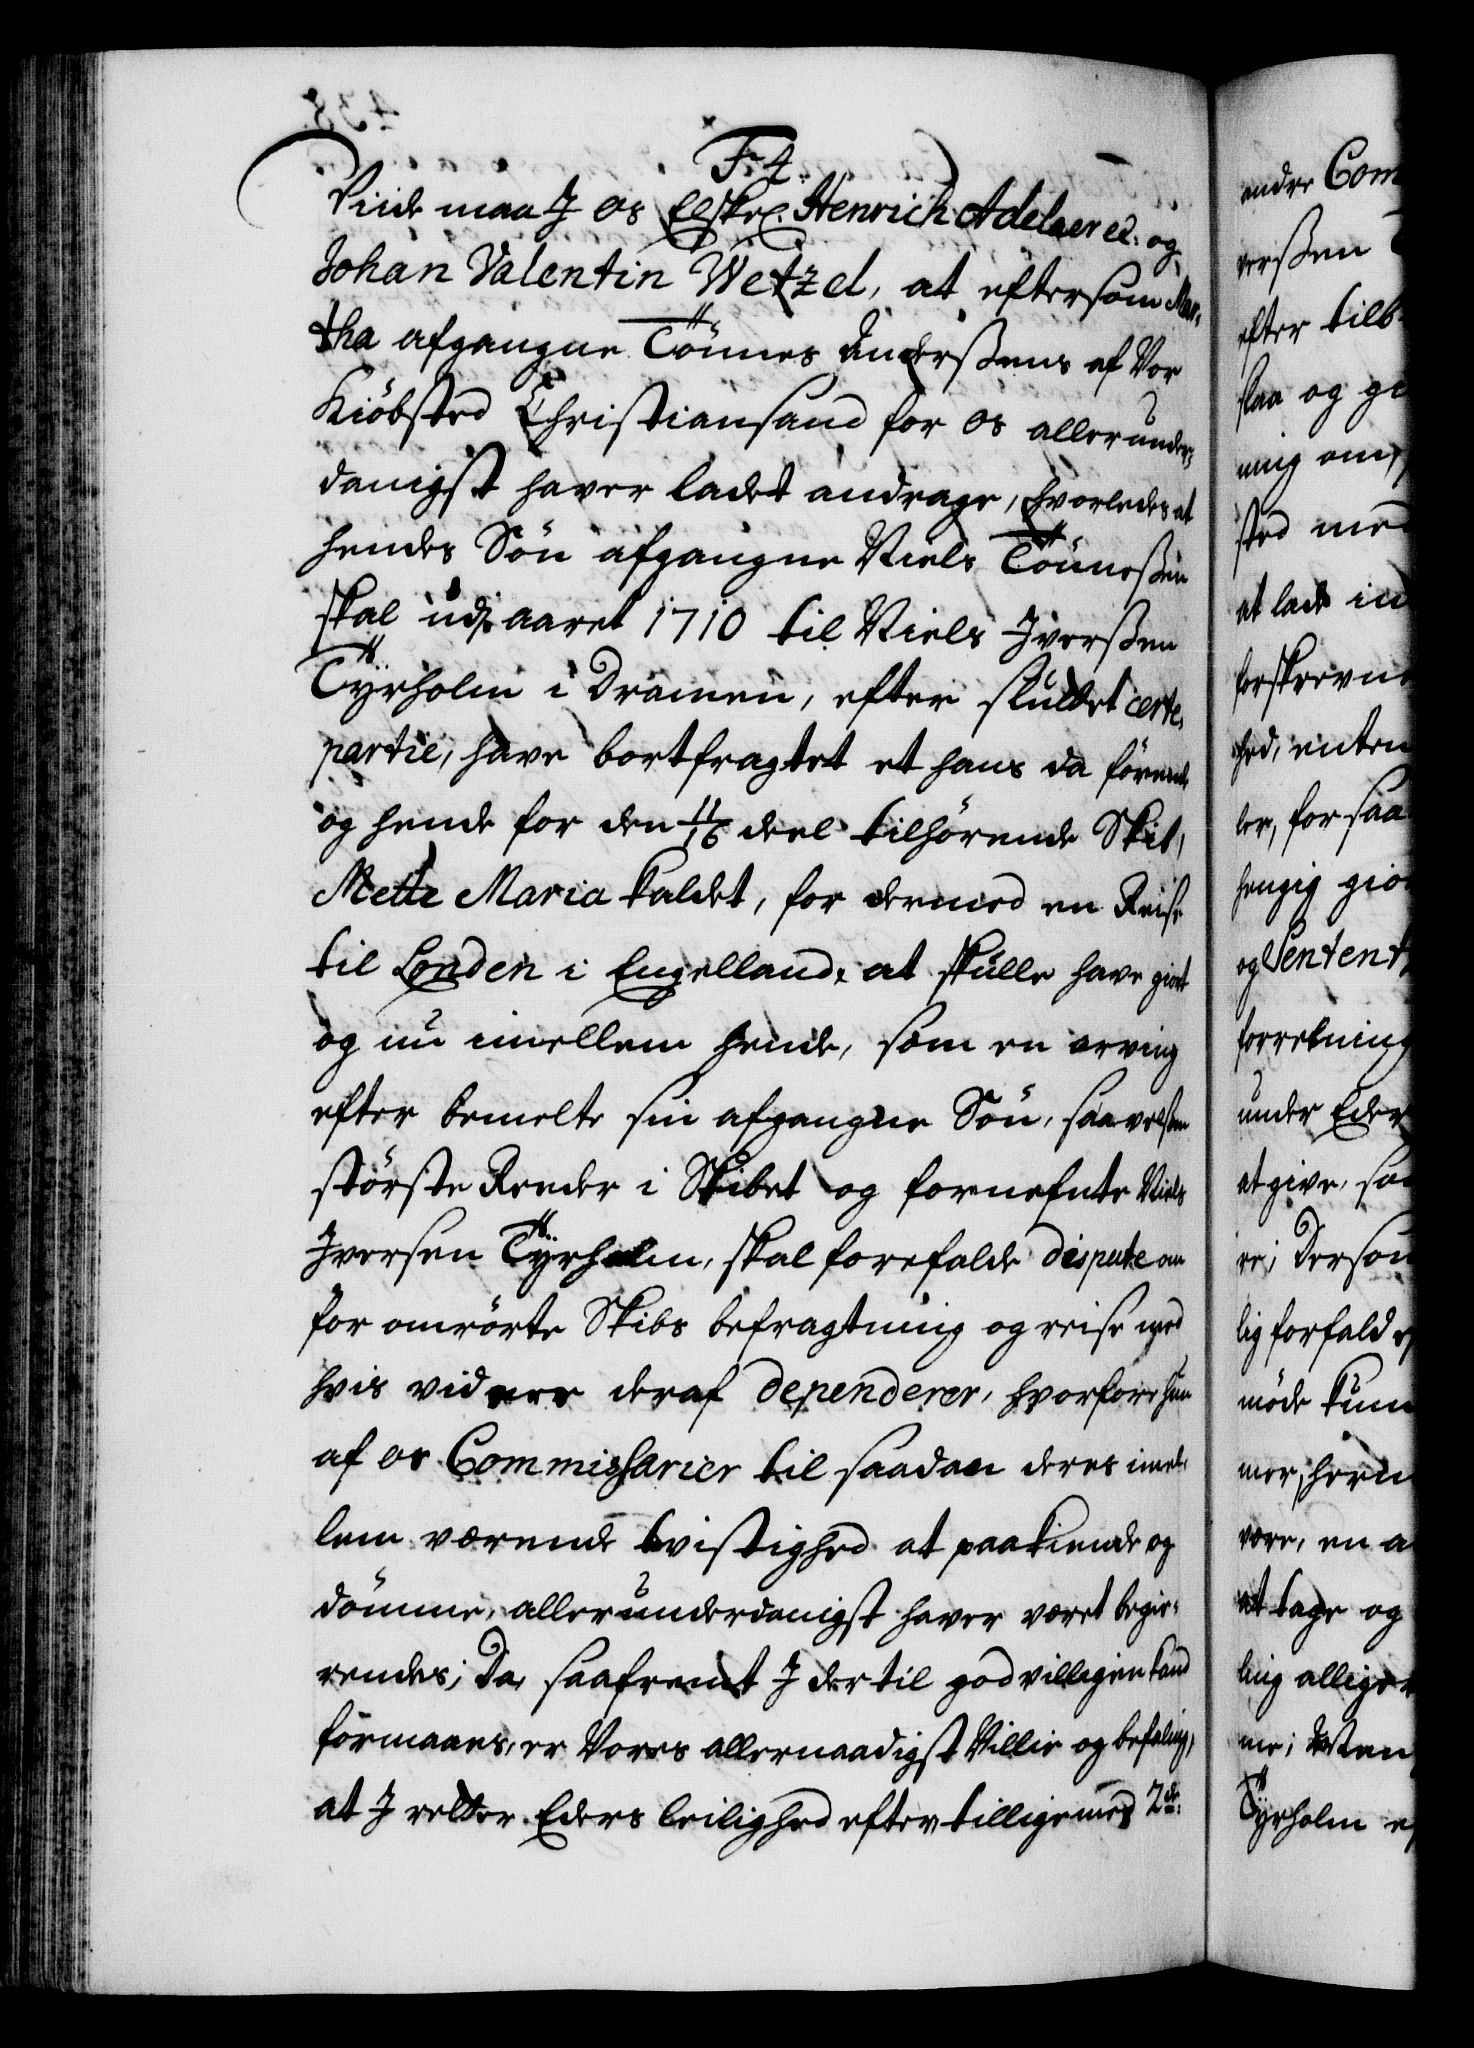 F4.
Viide maa J os Elskel. Henrich Adelaer et. og
Johan Valentin Wetzel, at eftersom Mar-
tha afgangne Tönnes Anderßens af Vor
Kiöbsted Christiansand for os allerunder-
danigst haver ladet andrage, hvorledes at
hendes Sön afgangne Niels Tönneßen
skal udj aaret 1710 til Niels Jverßen
Tÿrholm i Dramen, efter sluttet certe-
partie, have bortfragtet et hans da förende
og hende for den 11/16 deel tilhörende Skib,
Mette Maria kaldet, for dermed en Reise
til Londen i Engelland, at skulle have giort
og nu imellem hende, som en arving
efter bemelte sin afgangne Sön, saavelsom
störste Reeder i Skibet og fornefnte Niels
Jversen Tÿrholm, skal forefalde dispute om
for omrörte Skibs befragtning og reise med
hvis videre deraf dependerer, hvorfore hun
af os Commissarier til saadan deres imel-
lem værende tvistighed at paakiende og
dömme, allerunderdanigst haver været begie-
rendes; Da, saafremt J dertil godvilligen kand
formaaes, er Vores allernaadigst Villie og befaling,
at J retter Eders leilighed efter tilligemed 2de:
andre Com
verßen T
efter tilb
slaa og gi
ning om,
sted med
at lade in
forskrevne
hed, enten
ler, for saa
hengig gio
og Sentent
forretning
under Eder
at give, so
re; Dersom
lig forfald
möde kunn
mer, herm
være, en a
at tage og
ling allige
me; Desten
Tÿrholm e